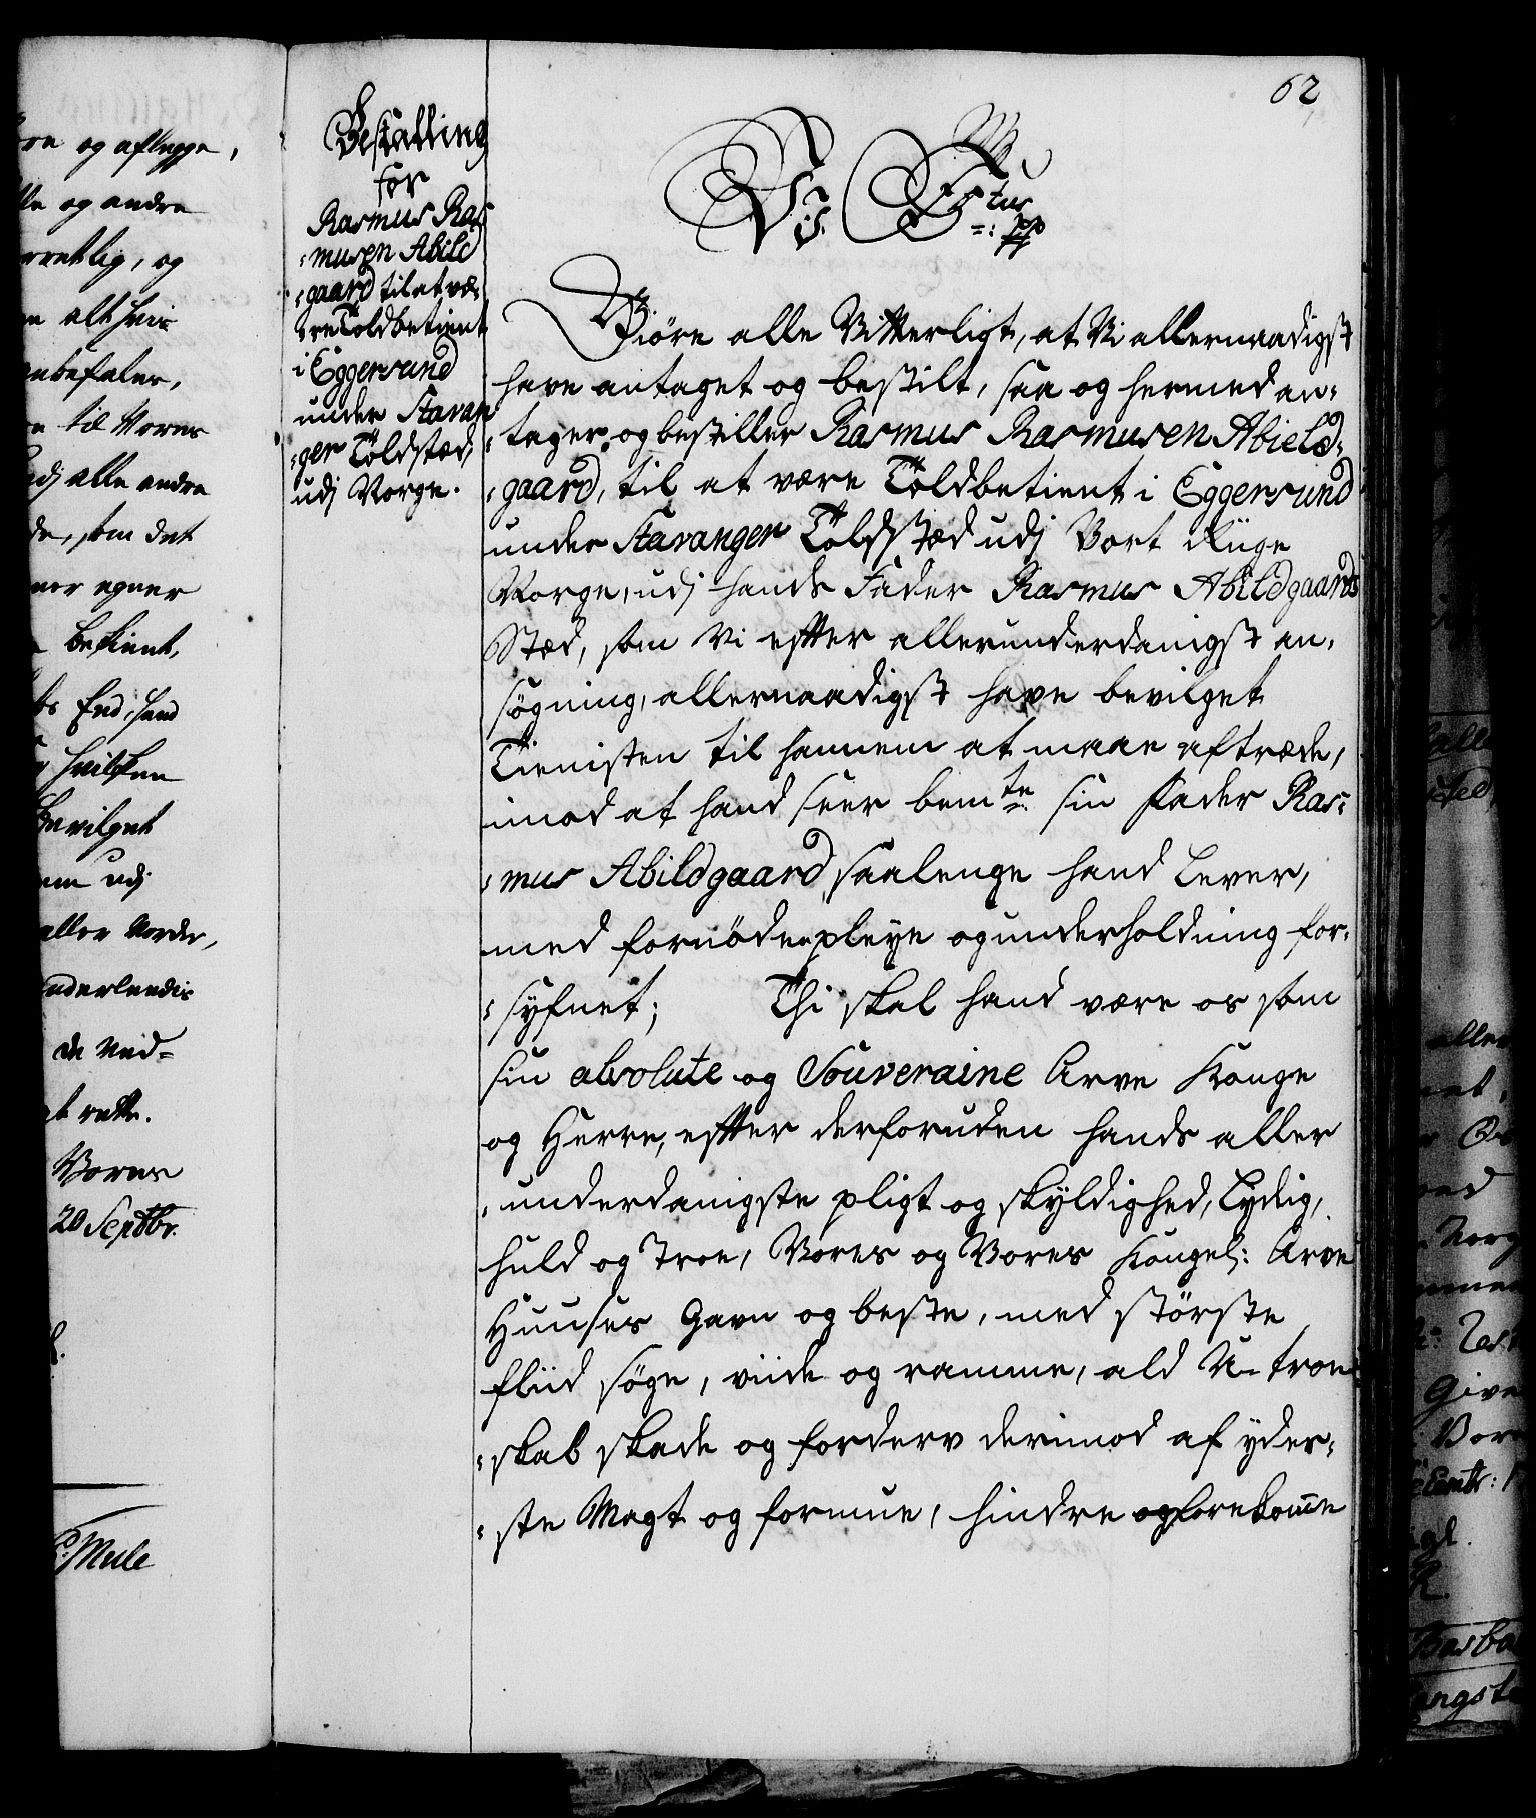 62
re og aflegge,
lle og andre
rretlig, og
alt hvis
nbefaler,
til Vores
dj alle andre
de, som det
egner
betient,
End hand
hvilken
Bevilget
udj
aller Norder,
nderlandis
de Ved-
at rette.
Vores
20 Septbr.
Mule
Bestalling
for
Rasmus Ras
:musen Abild
:gaard til at væ-
:re Toldbetient
i Eggersund
under Stavan
:ger Toldstæd,
udj Norge.
Vi F 5tus =: pp
Giöre alle Vitterligt, at Vi allernaadigst
have antaget og bestilt, saa og hermed an:
:tager og bestiller Rasmus Rasmusen Abield:
:gaard, til at være Toldbetient i Eggersund
under Stavanger Toldstæd udj Vort Riige
Norge, udj hands Fader Rasmus Abildgaards
Stæd, som Vi efter allerunderdanigst an:
søgning, allernaadigst have bevilget
Tienisten til hannem at maae aftræde,
imod at hand seer bemte sin Fader Ras:
:mus Abildgaard, saalenge hand Lever,
med fornöden pleye og underholdning for:
:syfnet; Thi skal hand være os som
sin absolute og Souveraine Arve Konge
og Herre, efter derforuden hands aller
:underdanigste pligt og skyldighed, Lydig,
huld og Troe, Vores og Vores Kongel: Arve
Huuses Gavn og beste, med störste
fliid søge, viide og ramme, ald U-troe
:skab skade og forderv derimod af yder:
:ste Magt og formue, hindre og forekomme